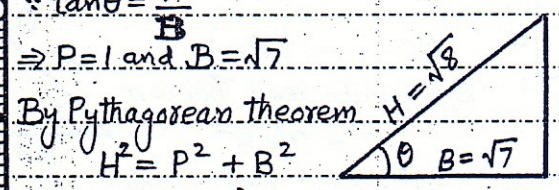 ∵ tanθ = P/B
⇒ P=1 and B=√7
By Pythagorean theorem
H² = P² + B²
H = √8
θ B = √7